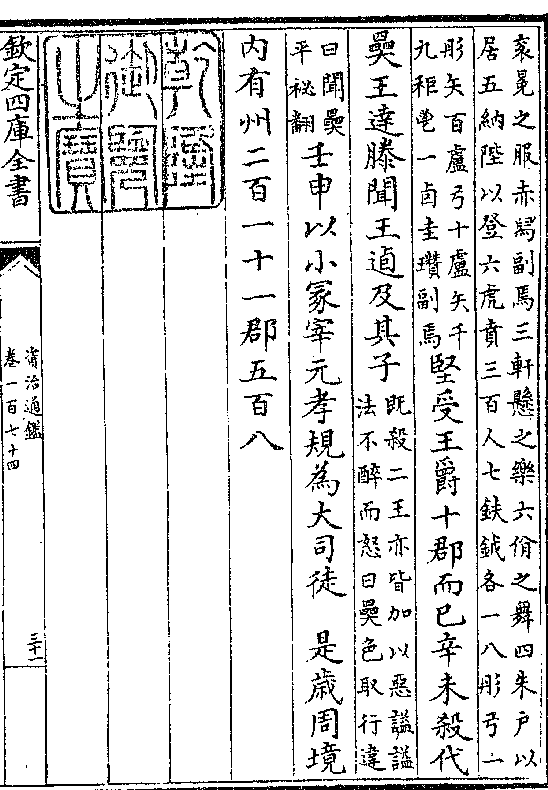 袞冕之服赤舄副焉三軒懸之樂六佾之舞四朱戶以
居五納陛以登六虎賁三百人七鈇鉞各一八彤弓一
彤矢百盧弓十盧矢千
九秬鬯一卣圭瓚副焉
堅受王爵十郡而已辛未殺代
奰王達滕聞王逌及其子
既殺二王亦皆加以惡謚謚
法不醉而怒曰奰色取行違
曰聞奰
平祕翻
壬申以小冢宰元孝規為大司徒　是歲周境
内有州二百一十一郡五百八
乾隆御覽之寶
欽定四庫全書
資治通鑑
卷一百七十四
三十一